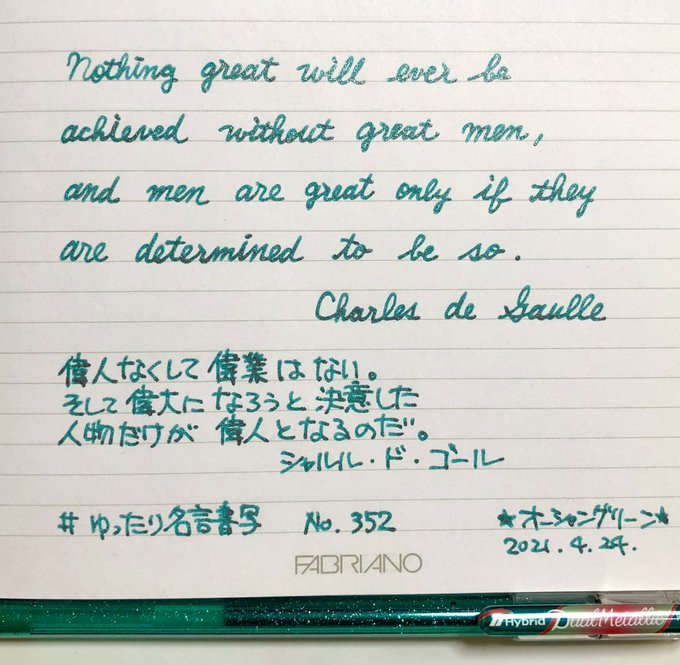 Nothing great will ever be
achieved without great men,
and men are great only if they
are determined to be so.
Charles de Gaulle
偉人なくして偉業はない。
そして偉大になろうと決意した
人物だけが偉人となるのだ。
シャルル・ド・ゴール
#ゆったり名言書写 No. 352 ★オーシャングリーン★
2021.4.24.
FABRIANO
Hybrid DualMetallic